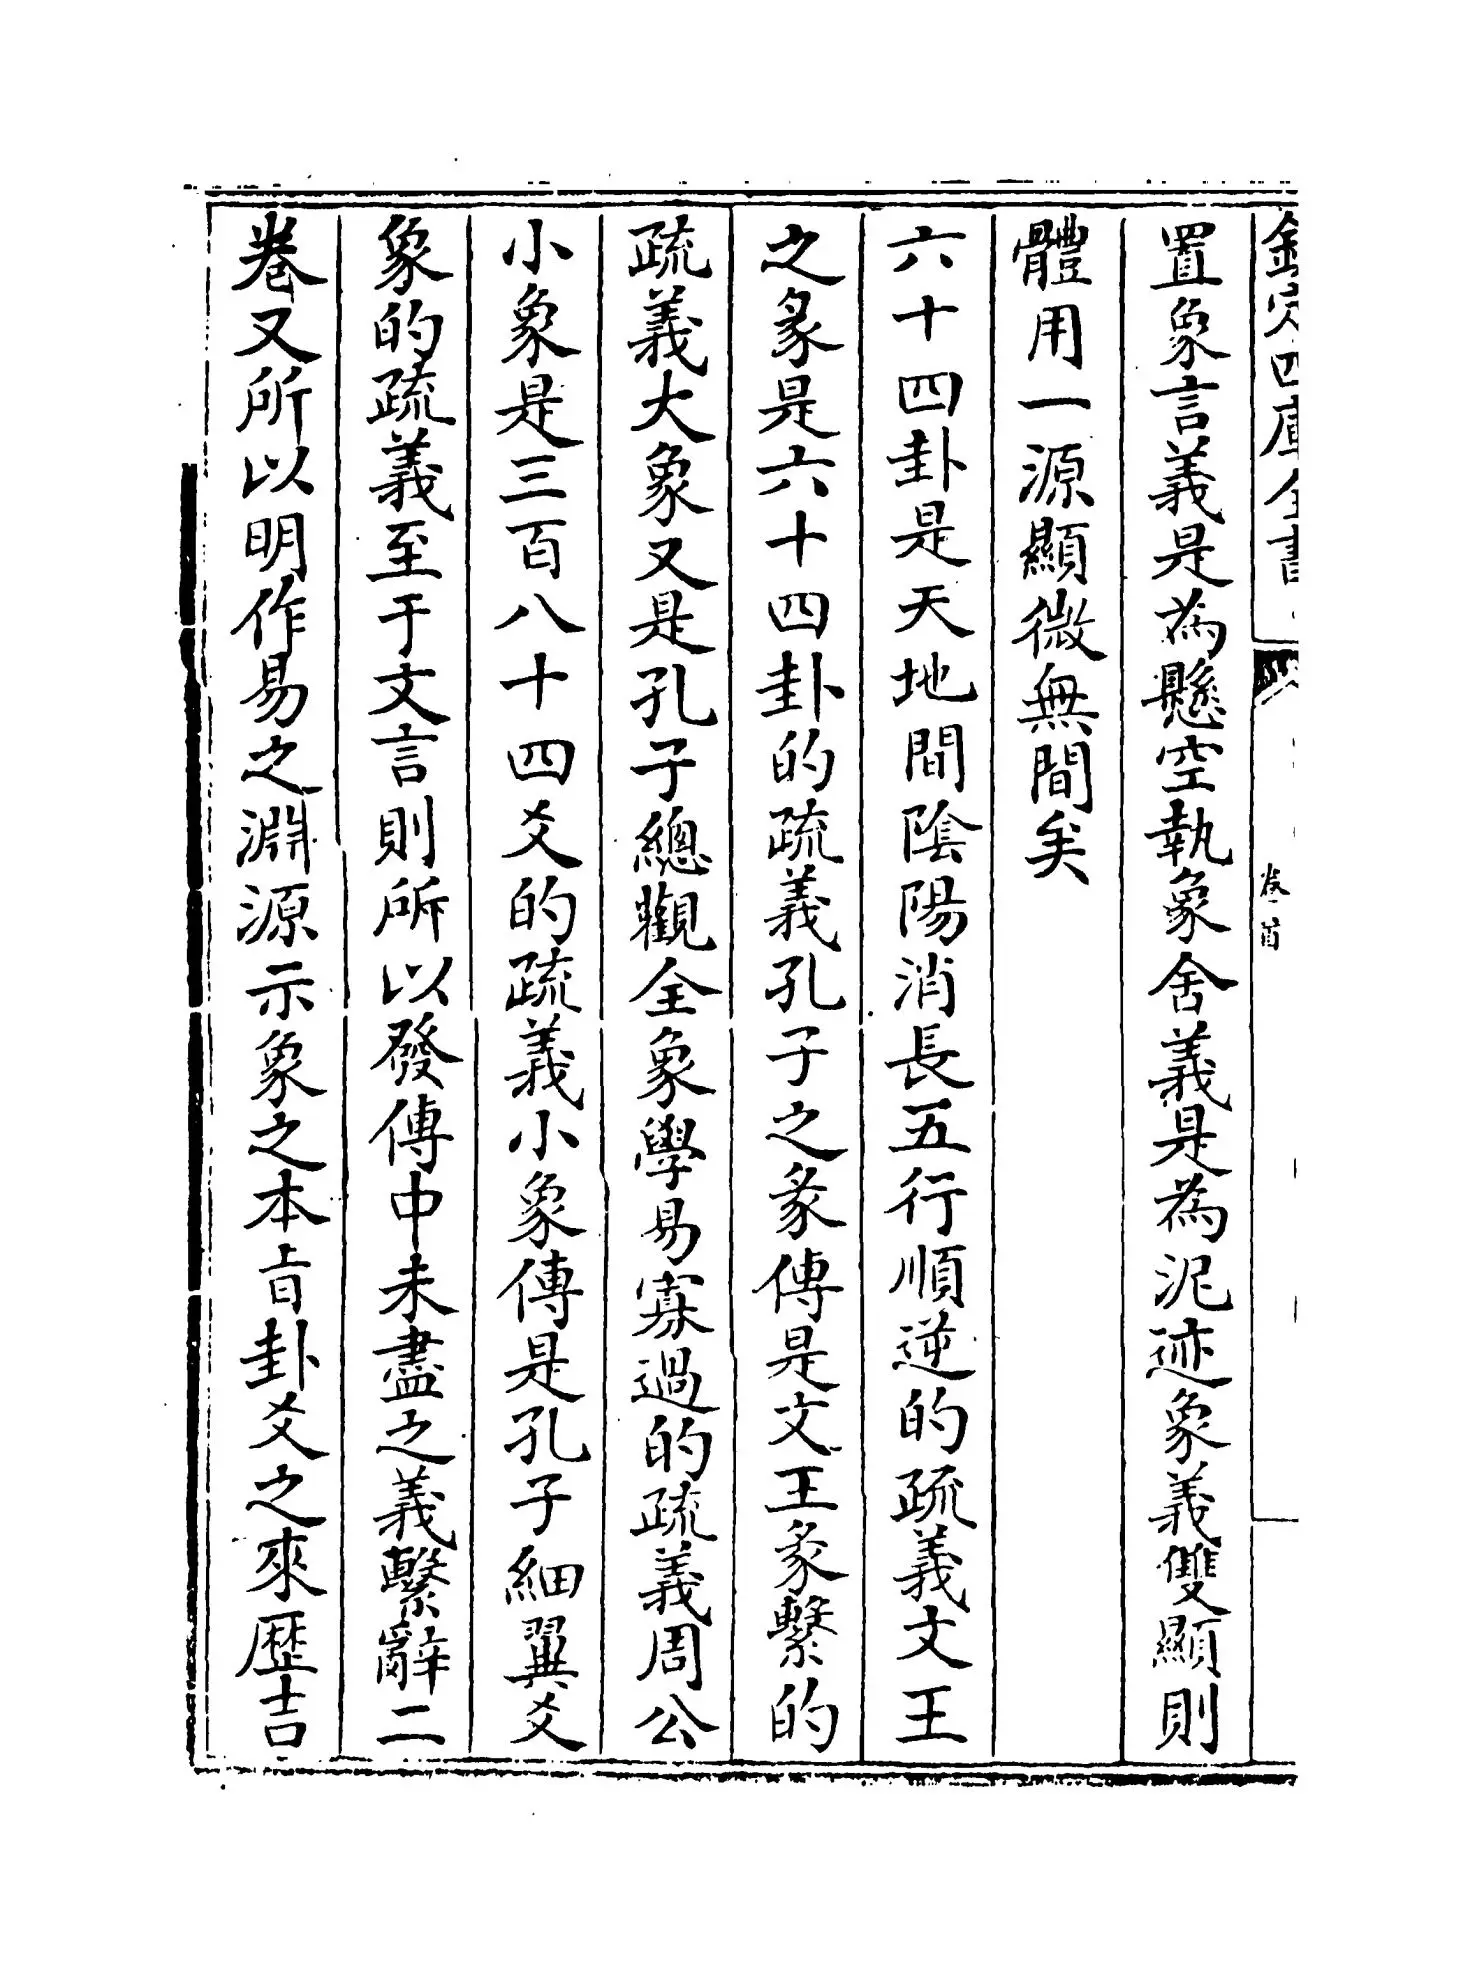 欽定四庫全書
卷首
置象言義是為懸空執象舍義是為泥迹象義雙顯則
體用一源顯微無間矣
六十四卦是天地間陰陽消長五行順逆的疏義文王
之彖是六十四卦的疏義孔子之彖傳是文王彖繫的
疏義大象又是孔子總觀全象學易寡過的疏義周公
小象是三百八十四爻的疏義小象傳是孔子細翼爻
象的疏義至于文言則所以發傳中未盡之義繫辭二
卷又所以明作易之淵源示象之本旨卦爻之來歴吉